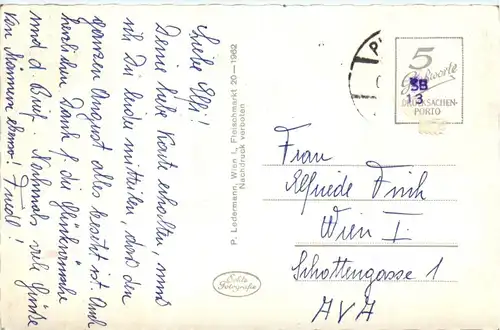 Liebe Elfi!
Deine liebe Karte erhalten, muss
ich Dir leider mitteilen, dass den
ganzen August alles besetzt ist. Auch
herzlichen Dank f. die Glückwünsche
und d. Brief. Nochmals viele Grüsse
von Mimma ebenso! Friedl!
P. Ledermann, Wien I., Fleischmarkt 20—1962
Nachdruck verboten
Echte
Fotografie
5
Grußworte
SB
13
DRUCKSACHEN-
PORTO
Frau
Elfriede
Wien I.
Schottengasse 1
AVA